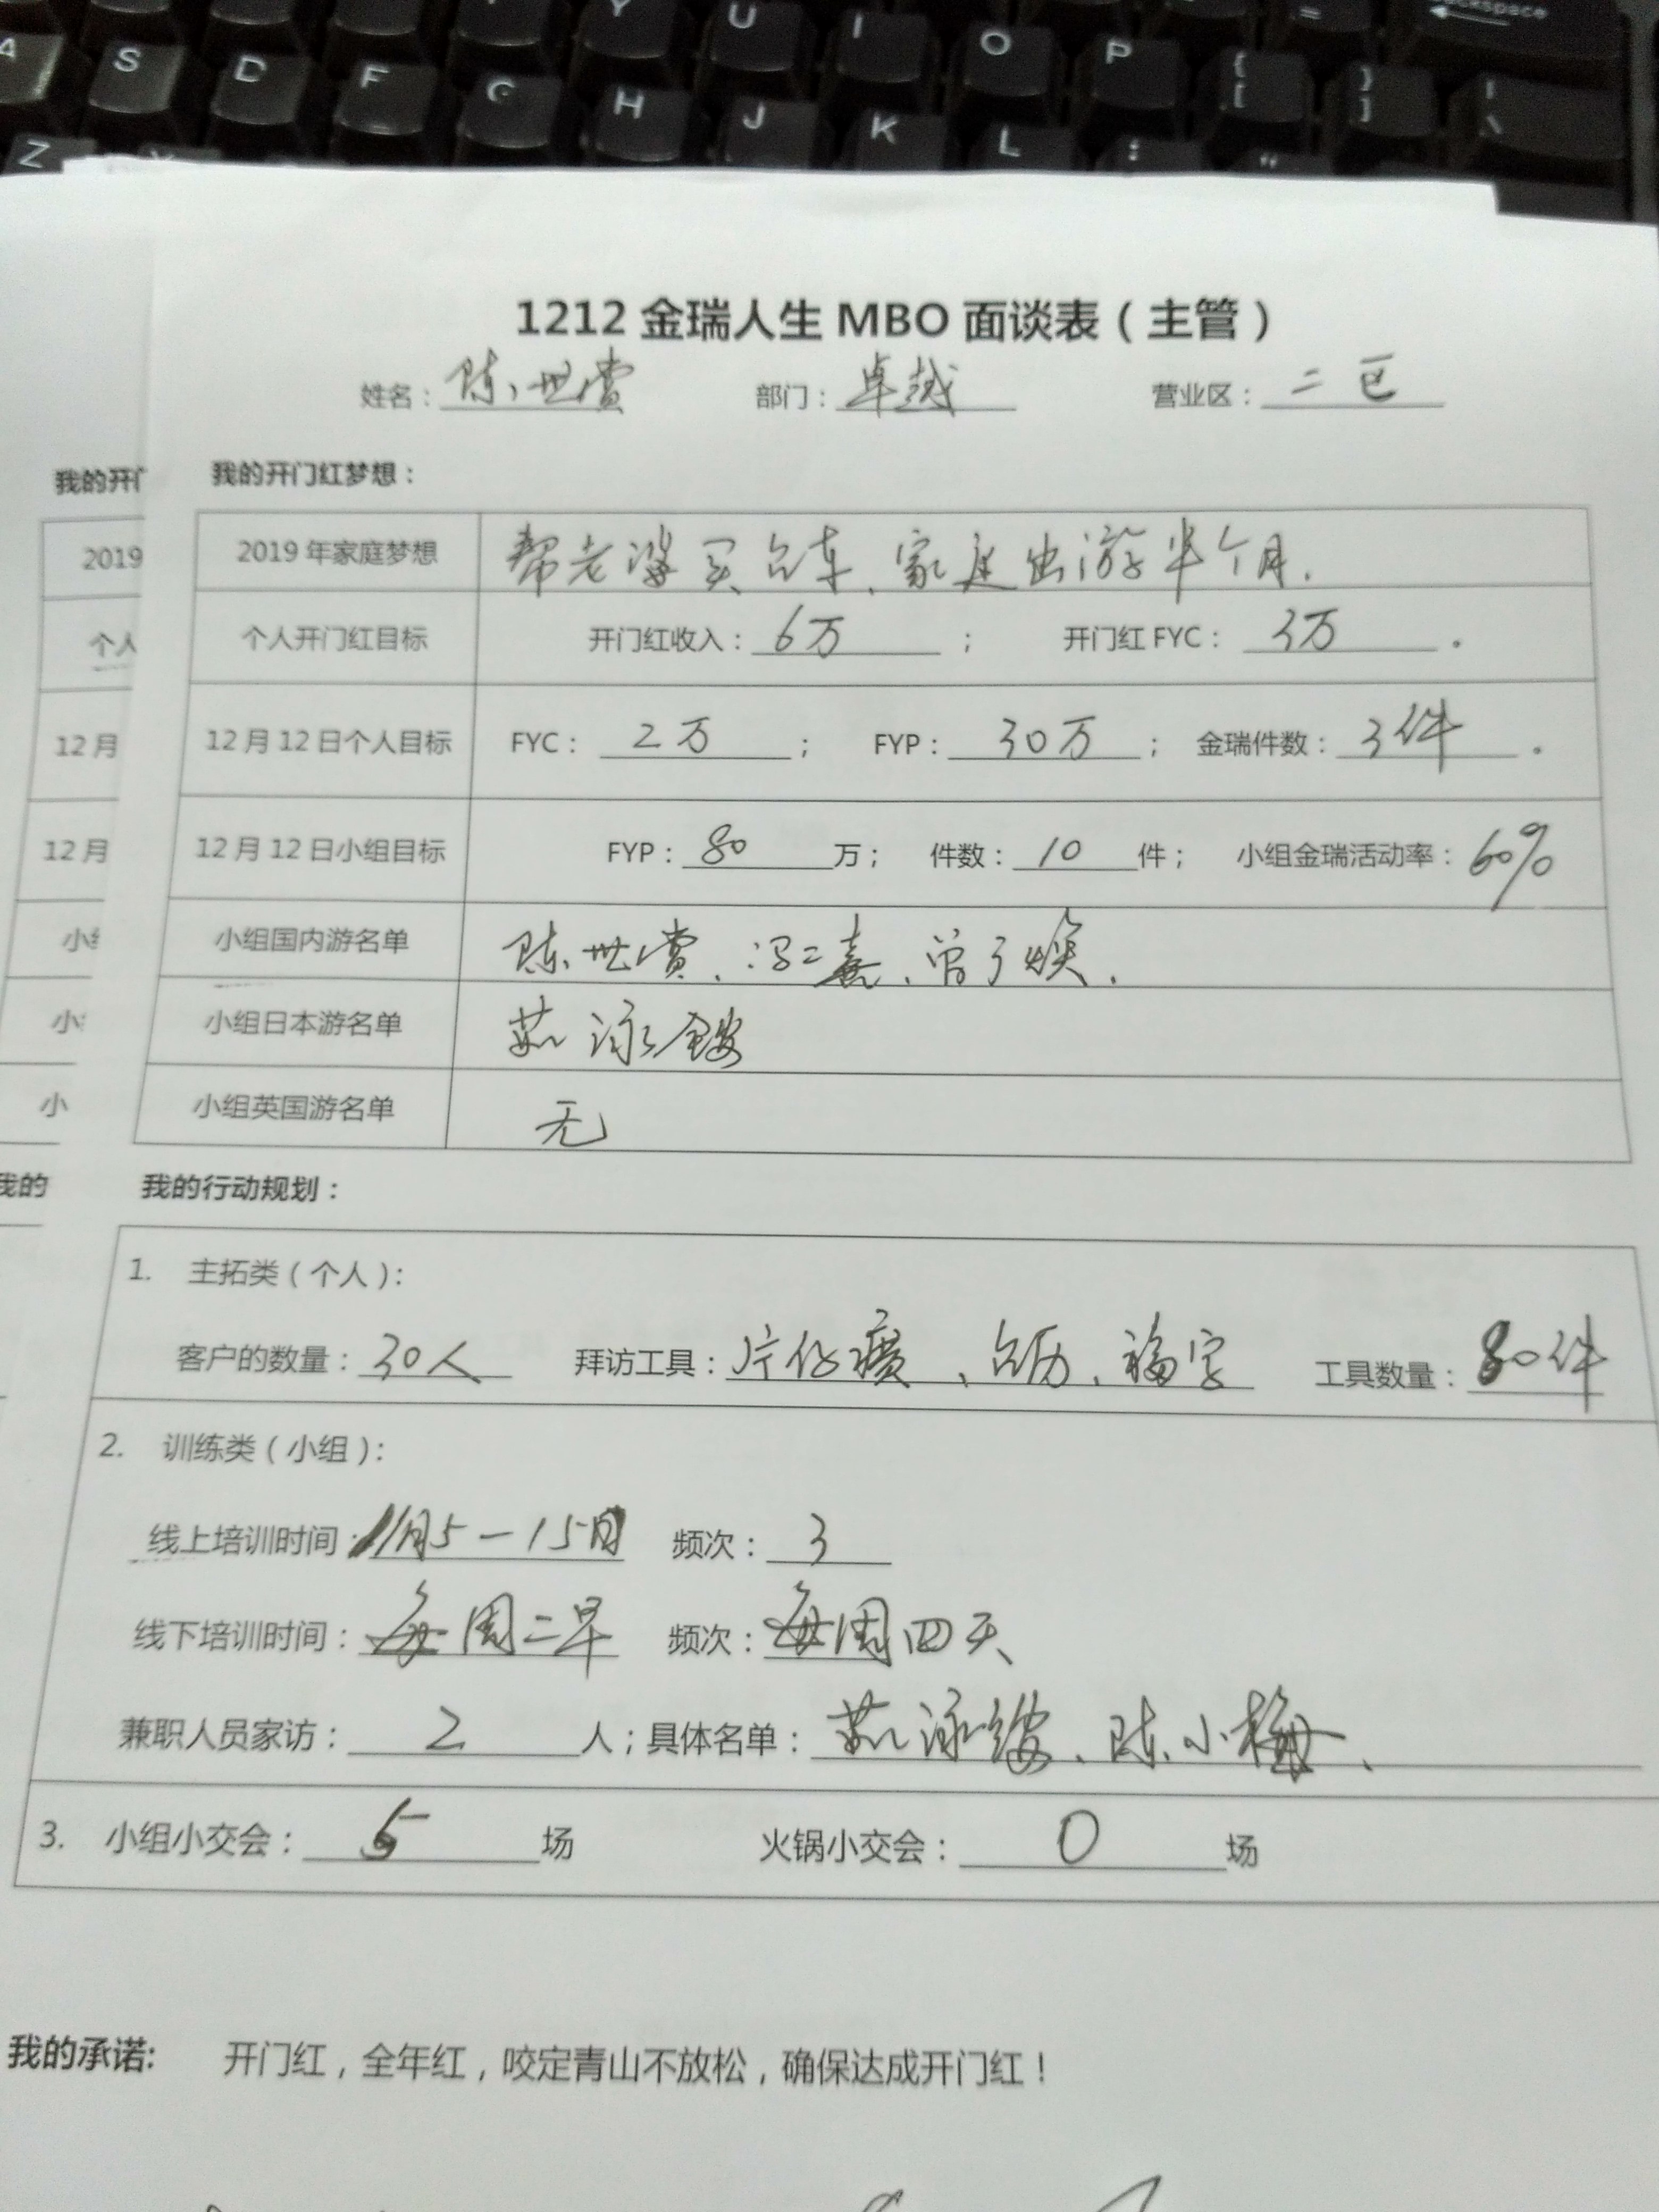 U I O P { [ } ] = Backspace
A S D F G H J K L : "
Z
1212 金瑞人生 MBO 面谈表（主管）
姓名：陈世赏 部门：卓越 营业区：二区
我的开门 我的开门红梦想：
2019 2019 年家庭梦想 帮老婆买台车、家庭出游半个月.
个人 个人开门红目标 开门红收入：6万； 开门红 FYC：3万.
12 月 12 月 12 日个人目标 FYC：2万； FYP：30万； 金瑞件数：3件.
12 月 12 月 12 日小组目标 FYP：80万； 件数：10件； 小组金瑞活动率：60%
小组 小组国内游名单 陈世赏、冯二熹、曾了焕.
小 小组日本游名单 茹泳
小 小组英国游名单 无
我的 我的行动规划：
1. 主拓类（个人）：
客户的数量：30人 拜访工具：片仔癀、台历、福字 工具数量：80件
2. 训练类（小组）：
线上培训时间：11月5—15日 频次：3
线下培训时间：每周二早 频次：每周四天
兼职人员家访：2人；具体名单：茹泳、陈小梅、
3. 小组小交会：5场 火锅小交会：0场
我的承诺: 开门红，全年红，咬定青山不放松，确保达成开门红！